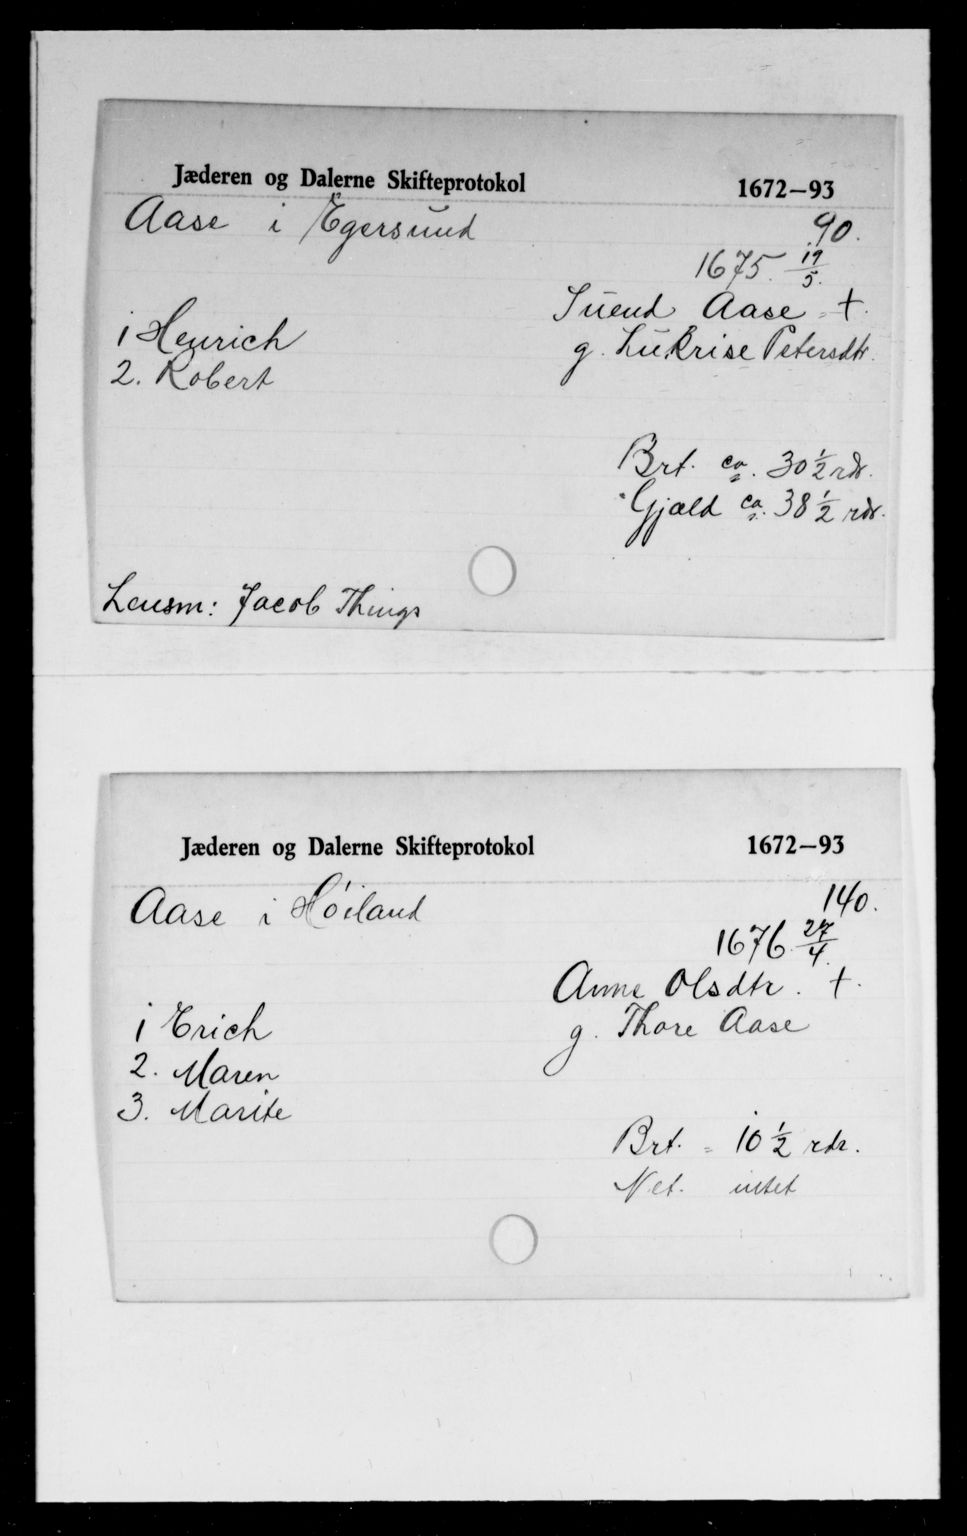 Jæderen og Dalerne Skifteprotokol 1672–93
Aase i Egersund 90.
1675. 19/5.
Suend Aase †.
1 Henrich g. Lukrise Petersdtr.
2. Robert
Brt. ca. 30 1/2 rdr.
Gjæld ca. 38 1/2 rdr.
Lensm: Jacob Things
Jæderen og Dalerne Skifteprotokol 1672–93
Aase i Høiland 140.
1676 27/4.
Anne Olsdtr. †.
1 Erich g. Thore Aase
2. Maren
3. Marite
Brt. = 10 1/2 rdr.
Net. intet